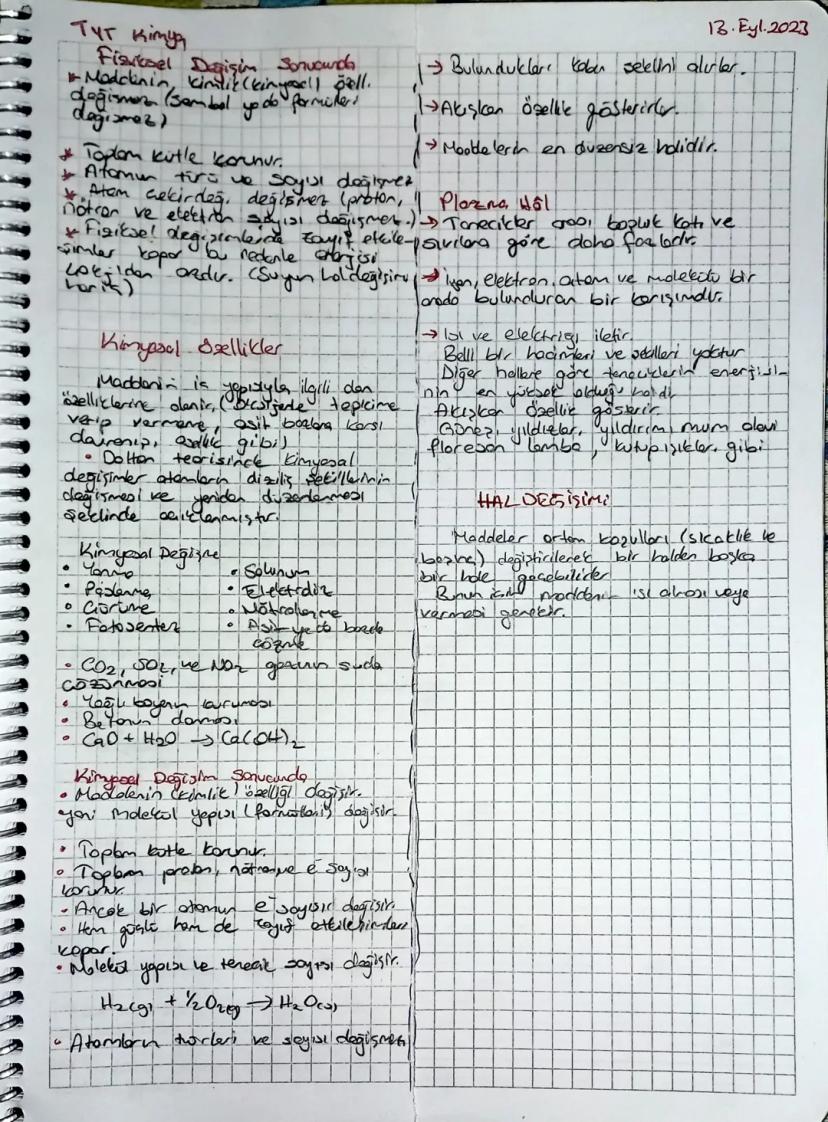 TYT Kimya
13.Eyl.2023
Fiziksel Değişim Sonucunda
* Maddenin kimlik (kimyasal) özell.
değişmez (sembol ya da formülleri
değişmez)
* Toplam kütle korunur.
* Atomun türü ve sayısı değişmez
* Atom çekirdeği değişmez (proton,
nötron ve elektron sayısı değişmez.)
* Fiziksel değişimlerde zayıf etkile-
şimler kopar bu nedenle enerjisi
azdır. (Suyun hal değişimi
hariç)
Kimyasal Özellikler
Maddenin iç yapısıyla ilgili olan
özelliklerine denir. ( tepkime
verip vermeme, asit bazlara karşı
davranışı, asitlik gibi)
• Dalton teorisinde kimyasal
değişimler atomların diziliş şekillerinin
değişmesi ve yeniden düzenlenmesi
şeklinde açıklanmıştır.
Kimyasal Değişme
• Yanma
• Paslanma
• Çürüme
• Fotosentez
• Solunum
• Elektroliz
• Nötrleşme
• Asit ya da bazda
çözünme
• CO2, SO2, ve NO2 gazının suda
çözünmesi
• Yağlı boyanın kuruması
• Betonun donması
• CaO + H2O → Ca(OH)2
Kimyasal Değişim Sonucunda
• Maddenin (kimlik) özelliği değişir.
yani molekül yapısı (formülleri) değişir.
• Toplam kütle korunur.
• Toplam proton, nötron ve e⁻ sayısı
korunur.
• Ancak bir atomun e⁻ sayısı değişir.
• Hem güçlü hem de zayıf etkileşimler
kopar.
• Molekül yapısı ve tanecik sayısı değişir.
H2(g) + ½O2(g) → H2O(s)
• Atomların türleri ve sayısı değişmez
→ Bulundukları kabın şeklini alırlar.
→ Akışkan özellik gösterirler.
→ Maddelerin en düzensiz halidir.
Plazma Hâl
→ Tanecikler arası boşluk katı ve
sıvılara göre daha fazladır.
→ İyon, elektron, atom ve molekülü bir
arada bulunduran bir karışımdır.
→ Isı ve elektriği iletir.
Belli bir hacimleri ve şekilleri yoktur
Diğer hallere göre taneciklerin enerjisi-
nin en yüksek olduğu haldir
Akışkan özellik gösterir
Güneş, yıldızlar, yıldırım, mum alevi
floresan lamba, kutup ışıkları gibi
HAL DEĞİŞİMİ
Maddeler ortam koşulları (sıcaklık ve
basınç) değiştirilerek bir halden başka
bir hale geçebilirler
Bunun için maddenin ısı alması veya
vermesi gerekir.